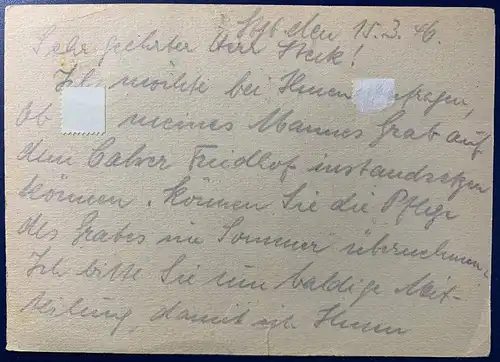 den 15.3.46.
Sehr geehrter Herr Steck!
Ich möchte bei Ihnen anfragen,
Ob meines Mannes Grab auf
dem Calwer Friedhof instandsetzen
können. Können Sie die Pflege
des Grabes im Sommer übernehmen?
Ich bitte Sie um baldige Mit-
teilung, damit ich Ihnen